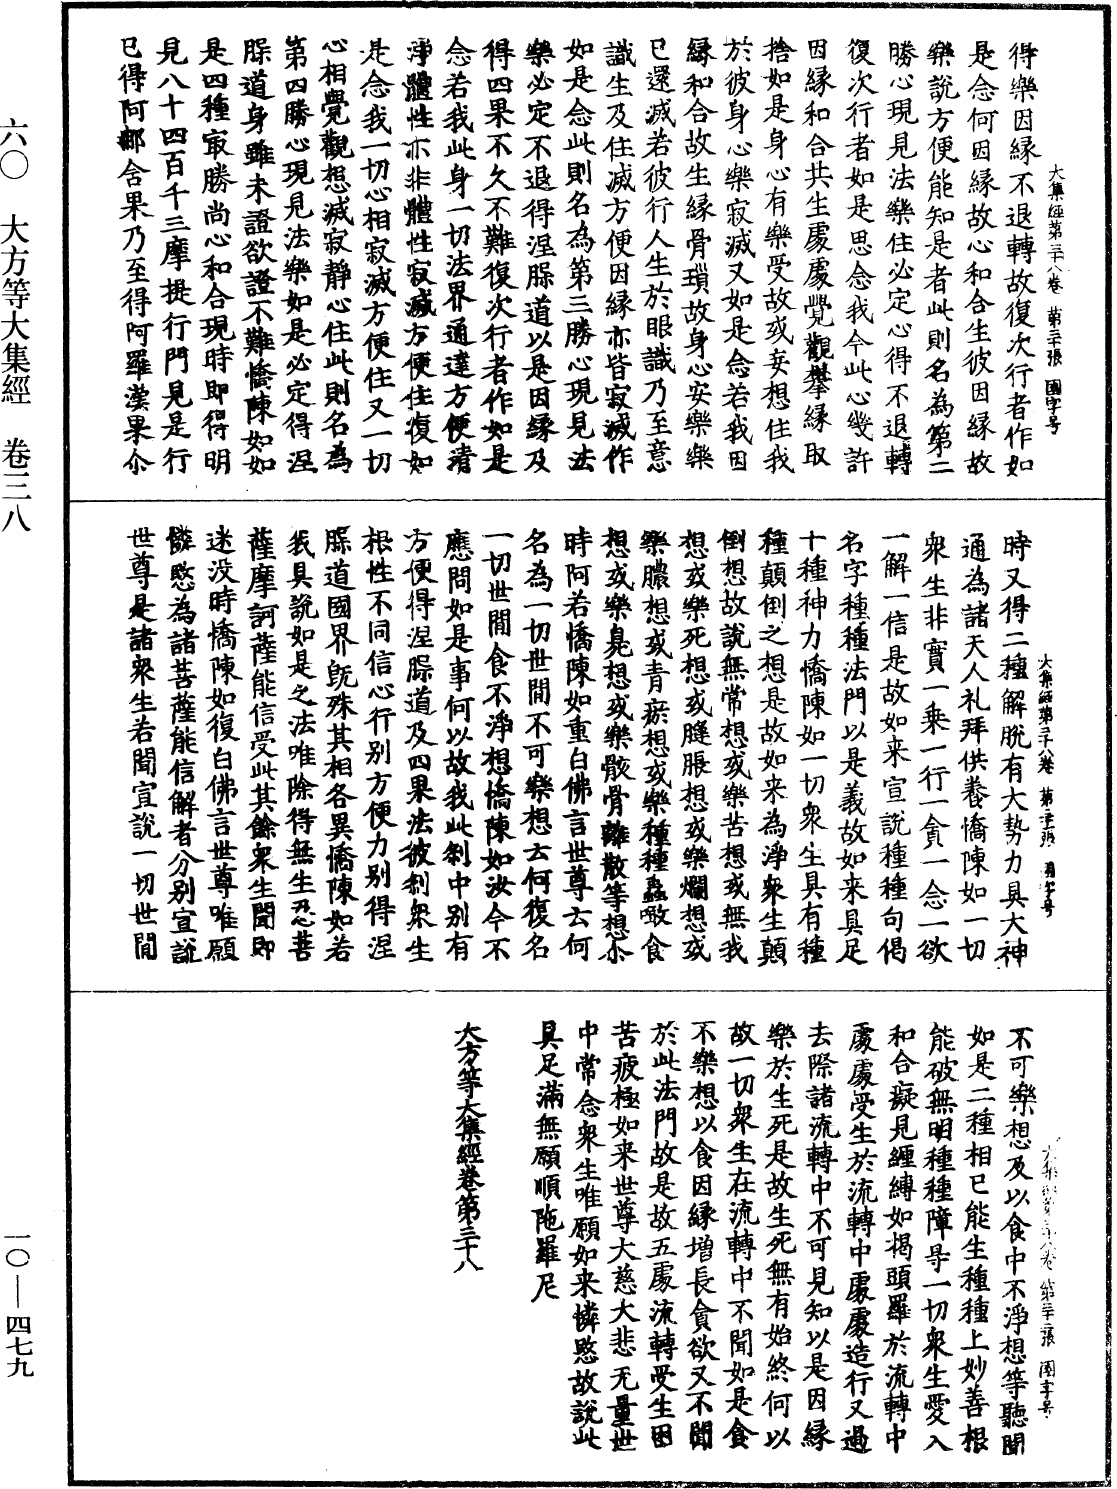 六〇　大方等大集經　卷三八
一〇——四七九
大集經第三十八卷　第二十張　國字号
得樂因緣不退轉故復次行者作如
是念何因緣故心和合生彼因緣故
樂說方便能知是者此則名為第二
勝心現見法樂住必定心得不退轉
復次行者如是思念我今此心幾許
因緣和合共生處處覺觀攀緣取
捨如是身心有樂受故或妄想住我
於彼身心樂寂滅又如是念若我因
緣和合故生緣骨瑣故身心安樂樂
已還滅若彼行人生於眼識乃至意
識生及住滅方便因緣亦皆寂滅作
如是念此則名為第三勝心現見法
樂必定不退得涅槃道以是因緣及
得四果不久不難復次行者作如是
念若我此身一切法界通達方便清
淨體性亦非體性寂滅方便住復如
是念我一切心相寂滅方便住又一切
心相覺觀想滅寂靜心住此則名為
第四勝心現見法樂如是必定得涅
槃道身雖未證欲證不難憍陳如如
是四種㝡勝尚心和合現時即得明
見八十四百千三摩提行門見是行
已得阿那含果乃至得阿羅漢果尒
大集經第三十八卷
時又得二種解脫有大勢力具大神
通為諸天人礼拜供養憍陳如一切
衆生非實一乘一行一貪一念一欲
一解一信是故如来宣說種種句偈
名字種種法門以是義故如来具足
十種神力憍陳如一切衆生具有種
種顛倒之想是故如来為淨衆生顛
倒想故說無常想或樂苦想或無我
想或樂死想或膖脹想或樂爛想或
樂膿想或青瘀想或樂種種蟲噉食
想或樂臭想或樂骸骨離散等想尒
時阿若憍陳如重白佛言世尊云何
名為一切世間不可樂想云何復名
一切世間食不淨想憍陳如汝今不
應問如是事何以故我此刹中別有
方便得涅槃道及四果法彼刹衆生
根性不同信心行別方便力別得涅
槃道國界旣殊其相各異憍陳如若
我具說如是之法唯除得無生忍菩
薩摩訶薩能信受此其餘衆生聞即
迷没時憍陳如復白佛言世尊唯願
憐愍為諸菩薩能信解者分別宣說
世尊是諸衆生若聞宣說一切世間
不可樂想及以食中不淨想等聽聞
如是二種相已能生種種上妙善根
能破無明種種障导一切衆生愛入
和合癡見纏縛如褐頭羅於流轉中
處處受生於流轉中處處造行又過
去際諸流轉中不可見知以是因緣
樂於生死是故生死無有始終何以
故一切衆生在流轉中不聞如是食
不樂想以食因緣增長貪欲又不聞
於此法門故是故五處流轉受生困
苦疲極如来世尊大慈大悲无量世
中常念衆生唯願如来憐愍故說此
具足滿無願順陁羅尼
大方等大集經卷第三十八